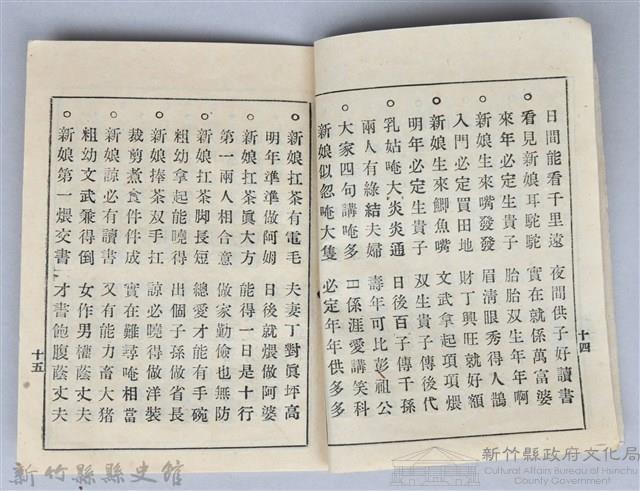 日間能看千里遠 夜間供子好讀書
○看見新娘耳駝駝 實在就係萬富婆
來年必定生貴子 胎胎双生年年啊
○新娘生來嘴發發 眉清眼秀得人鵲
入門必定買田地 財丁興旺就好額
○新娘生來鯽魚嘴 文武拿起項項煨
明年必定生貴子 双生貴子傳後代
○孔姑唵大炎炎通 日後百子傳千孫
兩人有緣結夫婦 壽年可比彭祖公
○大家四句講唵多 係涯愛講笑科
新娘似忽唵大隻 必定年年供多多
十四
○新娘扛茶有電毛 夫妻丁對真坪高
明年準準做阿娒 日後就煨做阿婆
○新娘扛茶真大方 能得一日是十行
第一兩人相合意 做家勤儉也無防
○新娘扛茶脚長短 總愛才能有手碗
粗幼拿起能曉得 出個子孫做省長
○新娘捧茶双手扛 諒必曉得做洋裝
裁剪煮食件件成 實在難尋唵相當
○新娘諒必有讀書 又有能力畜大猪
粗幼文武兼得倒 女作男權蔭丈夫
○新娘第一煨交書 才書飽腹蔭丈夫
十五
新竹縣縣史館
新竹縣政府文化局
Cultural Affairs Bureau of Hsinchu
County Government